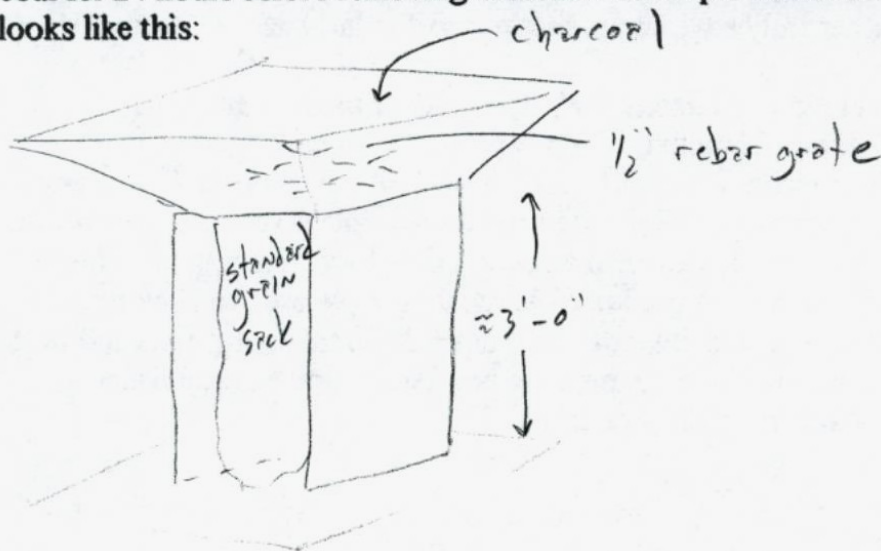 looks like this:
charcoal
1/2" rebar grate
standard
grain
sack
≈3'-0"